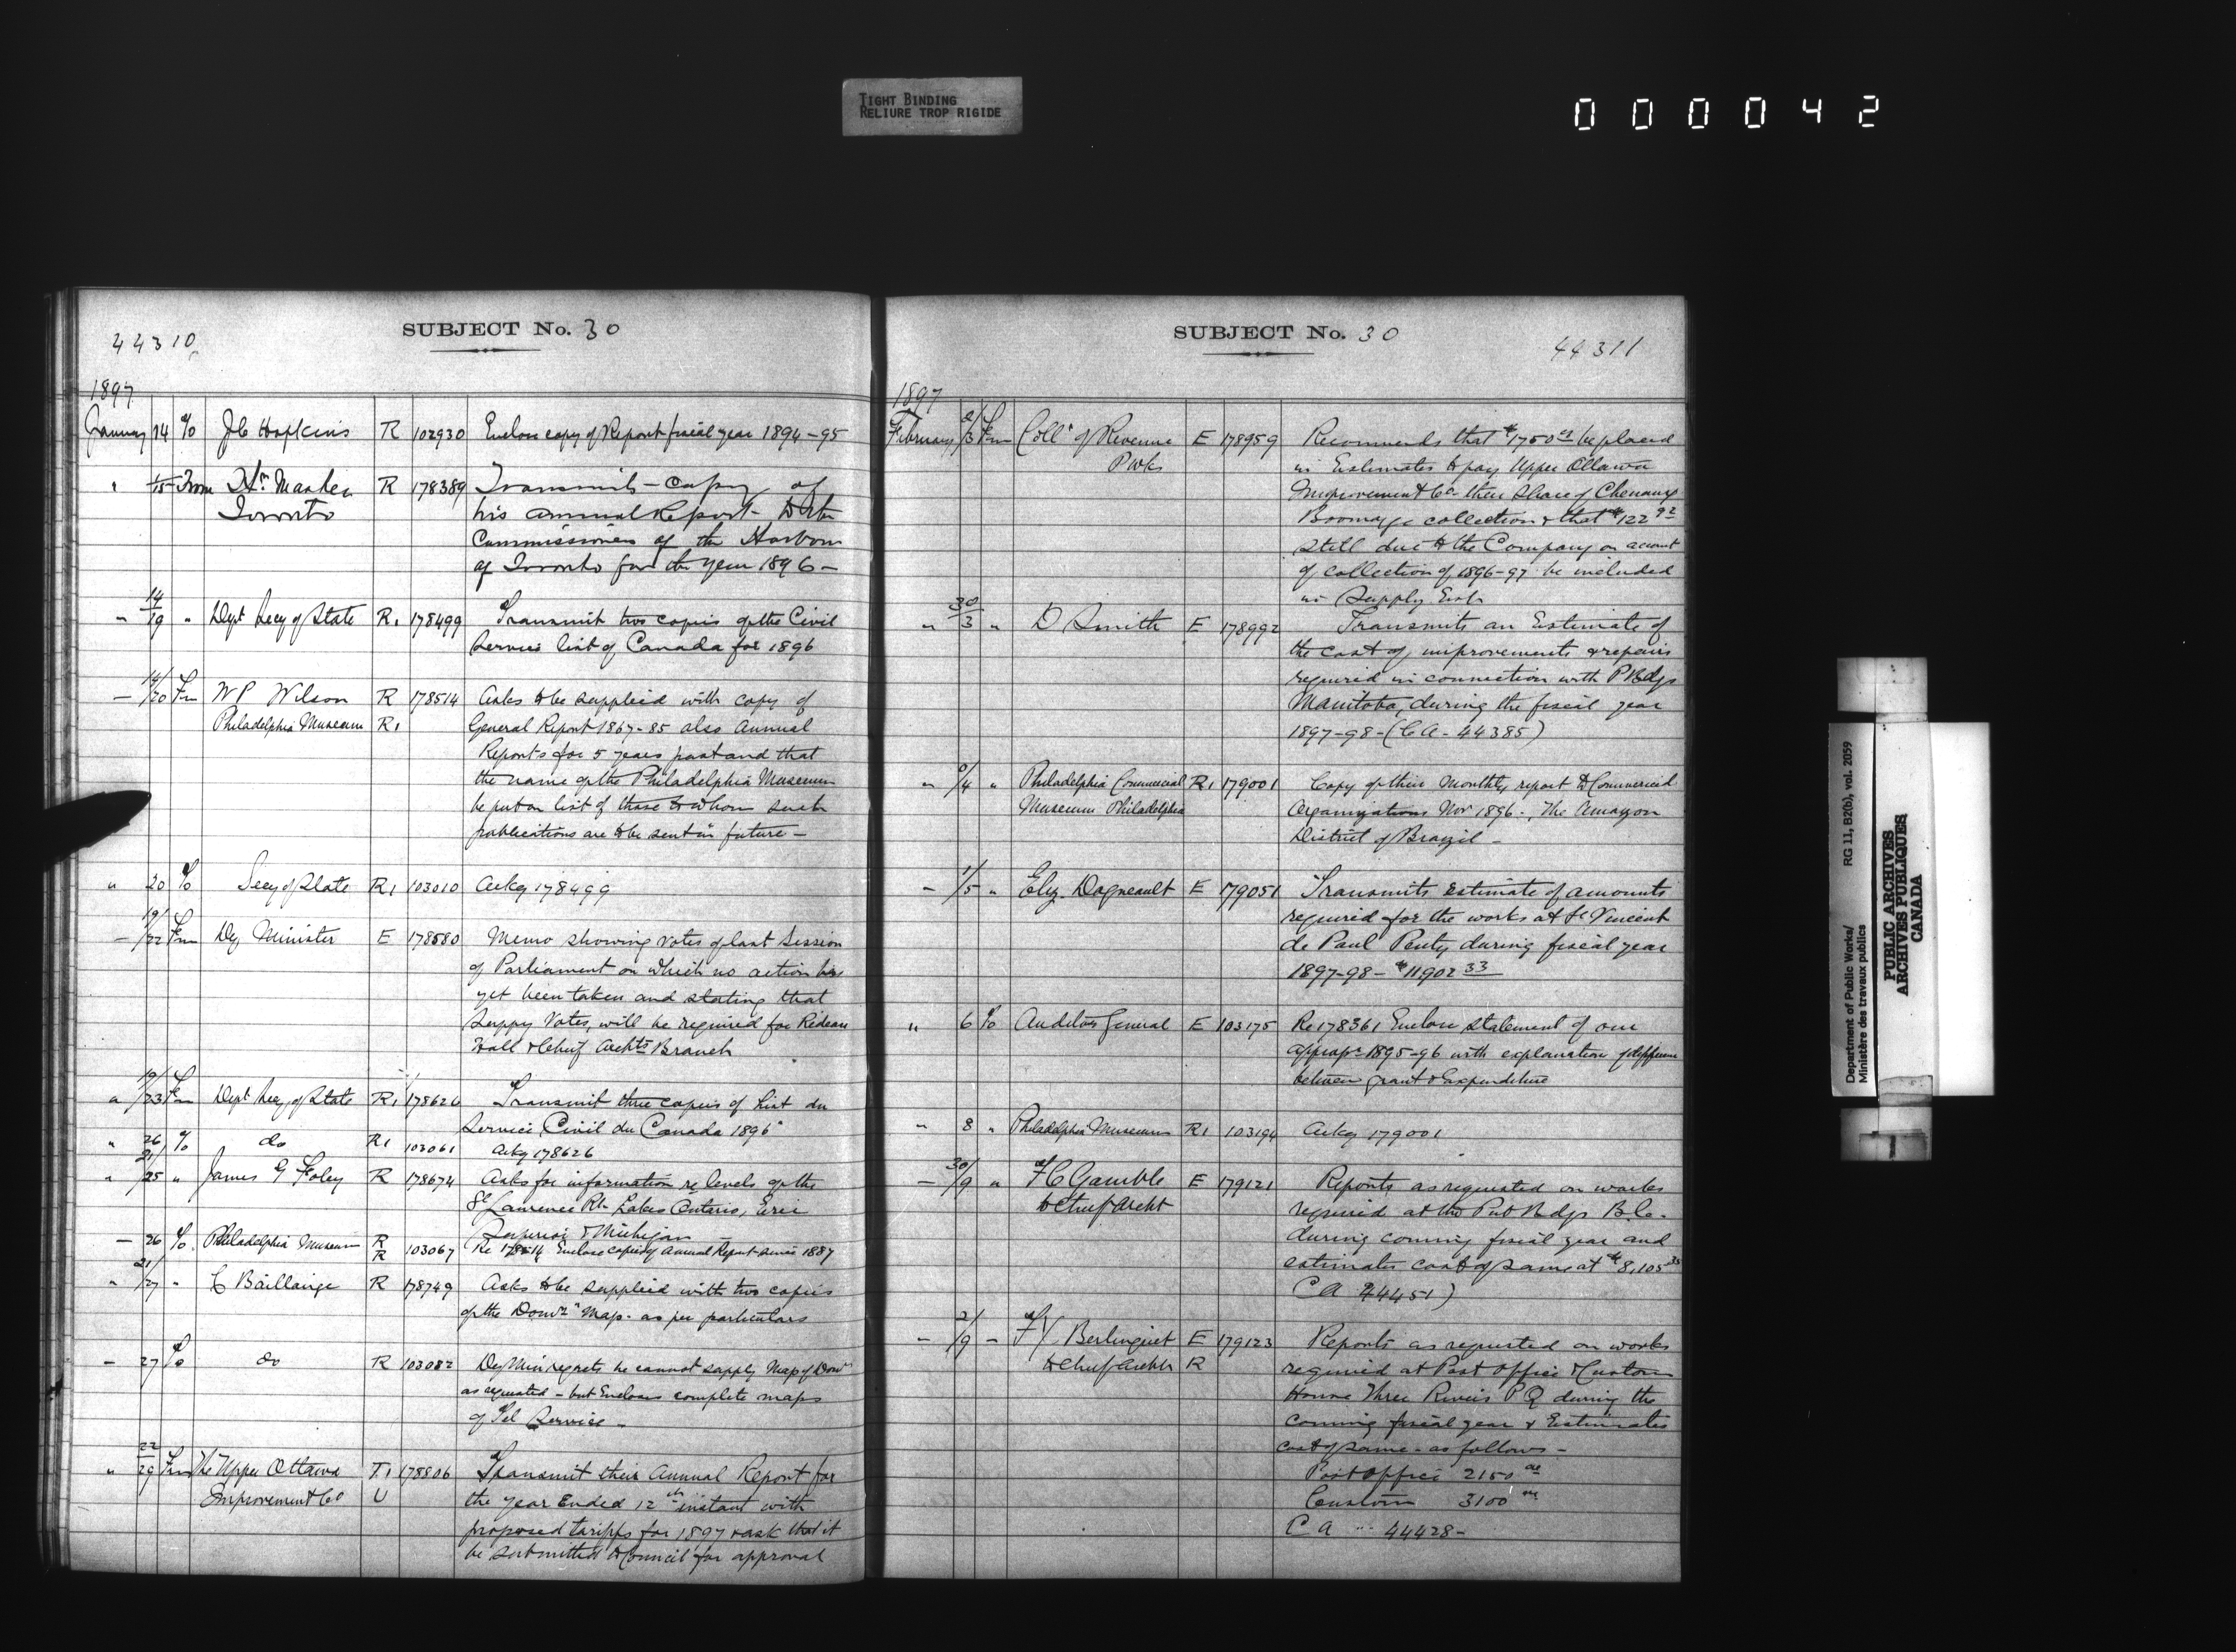 TIGHT BINDING
RELIURE TROP RIGIDE
000042
44310
SUBJECT No. 30
1897
January 14 To J C Hopkins R 102930 Enclose copy of Report fiscal year 1894-95
" 15 From Hr. Master R 178389 Transmits copy of
Toronto his annual Report to the
Commissioners of the Harbour
of Toronto for the year 1896 -
" 14/19 " Dept Secy of State R1 178499 Transmit two copies of the Civil
Service list of Canada for 1896
- 14/20 Fm W P Wilson R 178514 Asks to be supplied with copy of
Philadelphia Museum R1 General Report 1867-85 also Annual
Reports for 5 years past and that
the name of the Philadelphia Museum
be put on list of those to whom such
publications are to be sent in future -
" 20 To Secy of State R1 103010 Ackg 178499
- 19/22 Fm Dy Minister E 178580 Memo showing votes of last Session
of Parliament on which no action has
yet been taken and stating that
Suppy Votes, will be required for Rideau
Hall & Chief Archts Branch
" 19/23 Fm Dept Secy of State R1 178626 Transmit three copies of List du
Service Civil du Canada 1896"
" 26 To do R1 103061 Ackg 178626
" 21/25 " James G Foley R 178674 Asks for information re levels of the
St Lawrence Rr Lakes Ontario, Erie
Superior & Michigan -
- 26 To Philadelphia Museum R R 103067 Re 178514 Enclose copies of Annual Report since 1887
" 21/27 " C Baillairge R 178749 Asks to be supplied with two copies
of the Domn Map. as per particulars
- 27 To do R 103082 Dy Min regrets he cannot supply Map of Domn
as requested - but Encloses complete maps
of Tel Service -
" 22/29 Fm The Upper Ottawa T1 178806 Transmit their Annual Report for
Improvement Co U the year Ended 12th instant with
proposed tariffs for 1897 & ask that it
be submitted to Council for approval
SUBJECT No. 30
44311
1897
February 2/3 Fm Collr of Revenue E 178959 Recommends that $1750 be placed
P Wks in Estimates to pay Upper Ottawa
Improvement Co their share of Chenaux
Boomage collection & that $122 92
still due to the Company on account
of collection of 1896-97 be included
in Supply Est
" 30/3 " D Smith E 178992 Transmits an Estimate of
the cost of improvements & repairs
required in connection with P Bdgs
Manitoba, during the fiscal year
1897-98 - (C A - 44385)
" /4 " Philadelphia Commercial R1 179001 Copy of their Monthly report to Commercial
Museum Philadelphia Organizations Nov 1896 -, The Amazon
District of Brazil -
- 1/5 " Elz. Dagneault E 179051 Transmits estimate of amounts
required for the works at St Vincent
de Paul Penty during fiscal year
1897-98 - $11902 33
" 6 To Auditor General E 103175 Re 178361 Enclose statement of our
appropn 1895-96 with explanation of difference
between grant & Expenditure
" 8 " Philadelphia Museum R1 103194 Ackg 179001
- 30/9 " F C Gamble E 179121 Reports as requested on works
to Chief Archt required at the Pub Bdgs B.C.
during coming fiscal year and
estimates cost of same at $8,105 35
C A 44451)
- 2/9 - F X Berlinguet E 179123 Reports as requested on works
to Chief Archt R required at Post Office & Custom
House Three Rivers P Q during the
coming fiscal year & Estimates
cost of same - as follows -
Post Office 2150 00
Custom 3100 00
C A " 44428 -
Department of Public Works/ RG 11, B2(b), vol. 2059
Ministère des travaux publics
PUBLIC ARCHIVES
ARCHIVES PUBLIQUES
CANADA